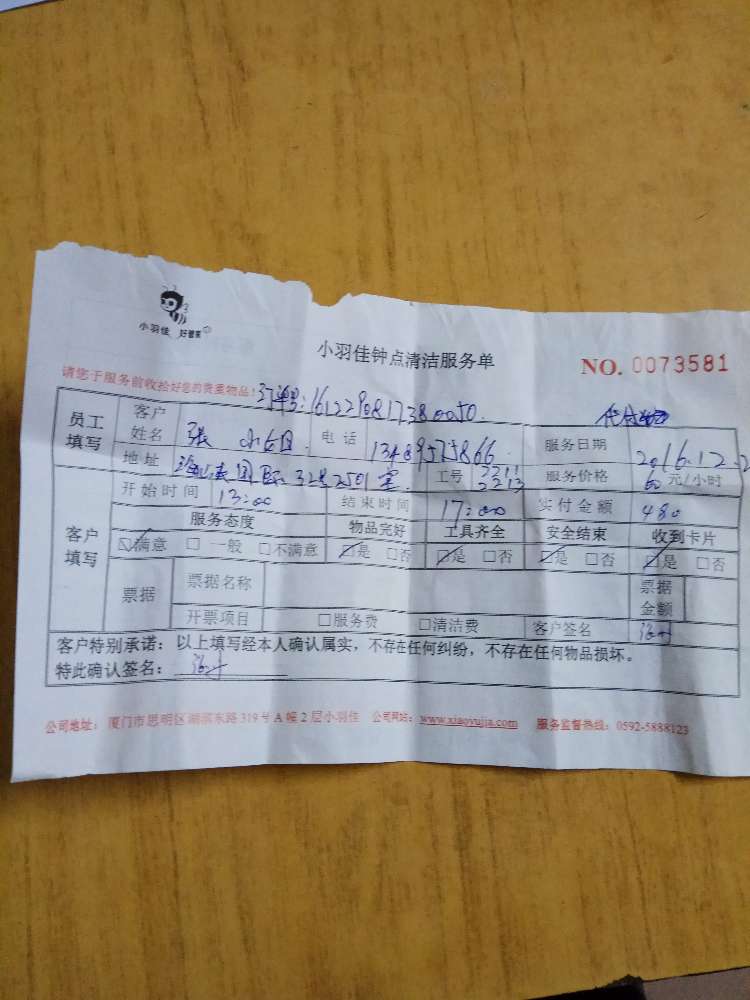 小羽佳 好管家
小羽佳钟点清洁服务单
NO. 0073581
请您于服务前收拾好您的贵重物品!
订单号:16122908173800050.
员工填写 客户姓名 张 小姐 电话 13489575866. 服务日期 2016.12.2
地址 国际 328 2501室. 工号 2211 2213 服务价格 60 元/小时
客户填写 开始时间 13:00 结束时间 17:00 实付金额 480
服务态度 物品完好 工具齐全 安全结束 收到卡片
☑满意 □一般 □不满意 ☑是 □否 ☑是 □否 ☑是 □否 ☑是 □否
票据 票据名称 票据金额
开票项目 □服务费 □清洁费 客户签名
客户特别承诺:以上填写经本人确认属实,不存在任何纠纷,不存在任何物品损坏。
特此确认签名:
公司地址:厦门市思明区湖滨东路319号A幢2层小羽佳 公司网站:www.xiaoyujia.com 服务监督热线:0592-5888123